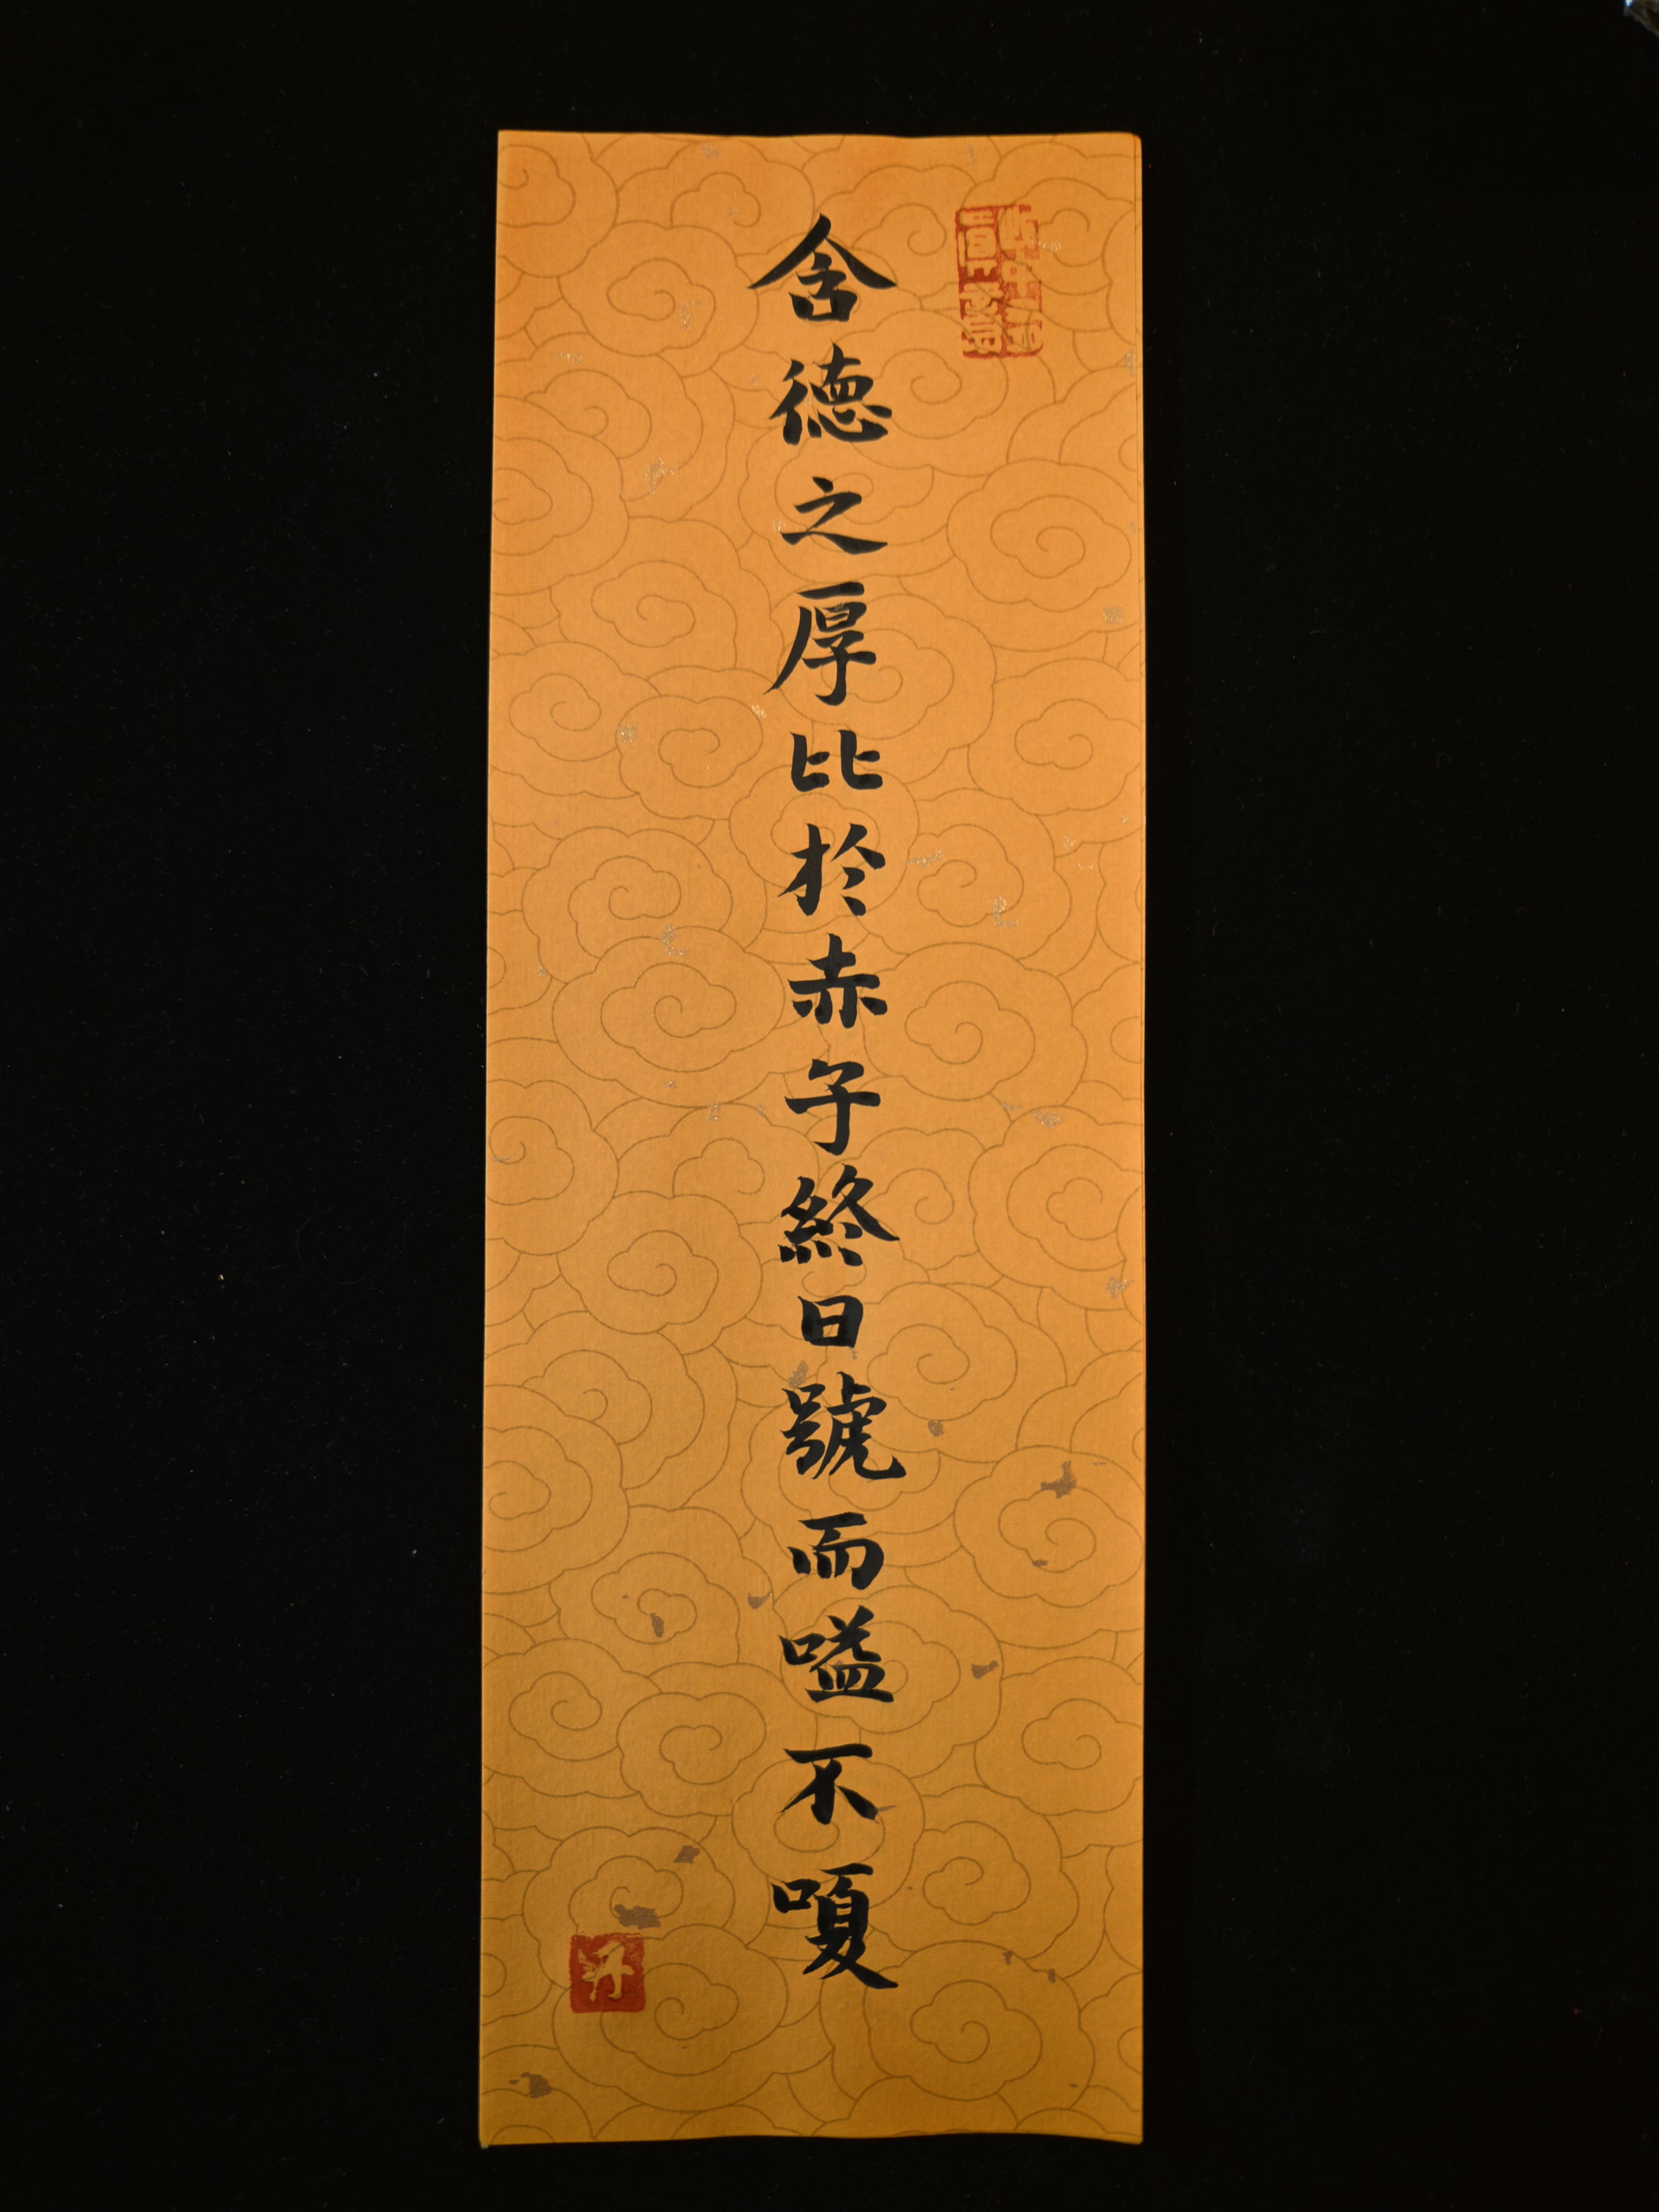 含德之厚比於赤子終日號而嗌不嗄